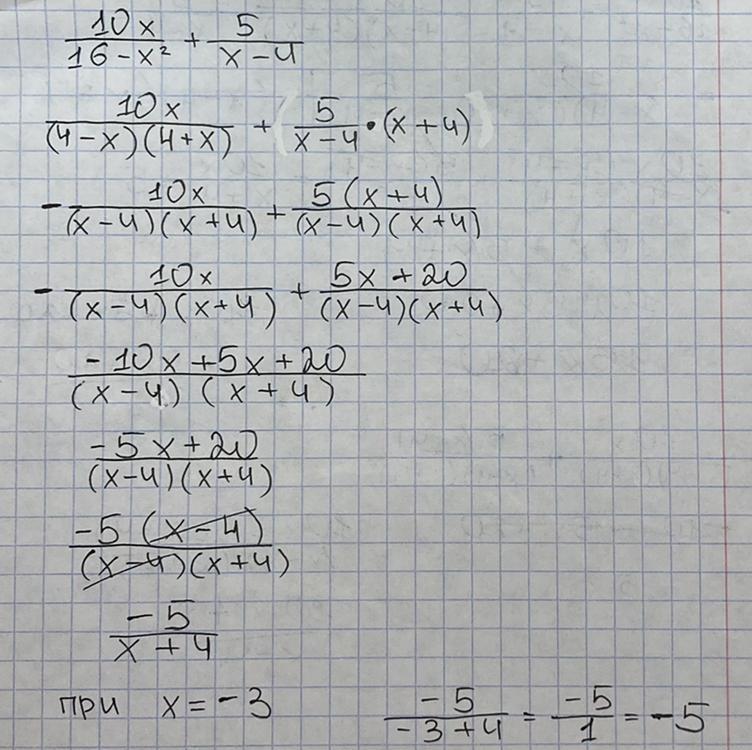 10x/(16-x²) + 5/(x-4)
10x/((4-x)(4+x)) + (5/(x-4) • (x+4))
- 10x/((x-4)(x+4)) + 5(x+4)/((x-4)(x+4))
- 10x/((x-4)(x+4)) + (5x+20)/((x-4)(x+4))
(-10x+5x+20)/((x-4)(x+4))
(-5x+20)/((x-4)(x+4))
-5(x-4)/((x-4)(x+4))
-5/(x+4)
при x=-3 -5/(-3+4) = -5/1 = -5